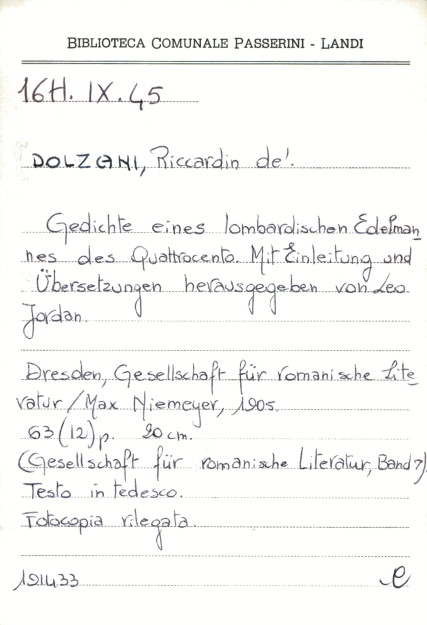 BIBLIOTECA COMUNALE PASSERINI - LANDI
16H. IX. 45
DOLZANI, Riccardin de'.
Gedichte eines lombardischen Edelman
nes des Quattrocento. Mit Einleitung und
Übersetzungen herausgegeben von Leo
Jordan.
Dresden, Gesellschaft für romanische Lite
ratur/Max Niemeyer, 1905.
63 (12) p. 20 cm.
(Gesellschaft für romanische Literatur, Band 7).
Testo in tedesco.
Fotocopia rilegata.
191433 e